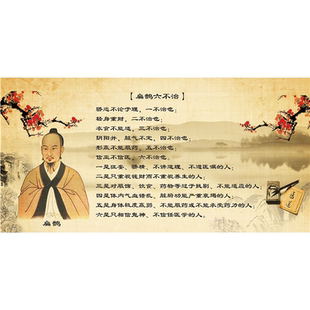 【扁鹊六不治】
骄恣不论于理，一不治也；
轻身重财，二不治也；
衣食不能适，三不治也；
阴阳并，脏气不定，四不治也；
形羸不能服药，五不治也；
信巫不信医，六不治也；
一是狂妄、骄横、不讲道理、不遵医嘱的人；
二是只重视钱财而不重视养生的人；
三是对服饰、饮食、药物等过于挑剔、不能适应的人；
四是体内气血错乱、脏腑功能严重衰竭的人；
五是身体极度羸弱、不能服药或不能承受药力的人；
六是只相信鬼神、不信任医学的人。
扁鹊